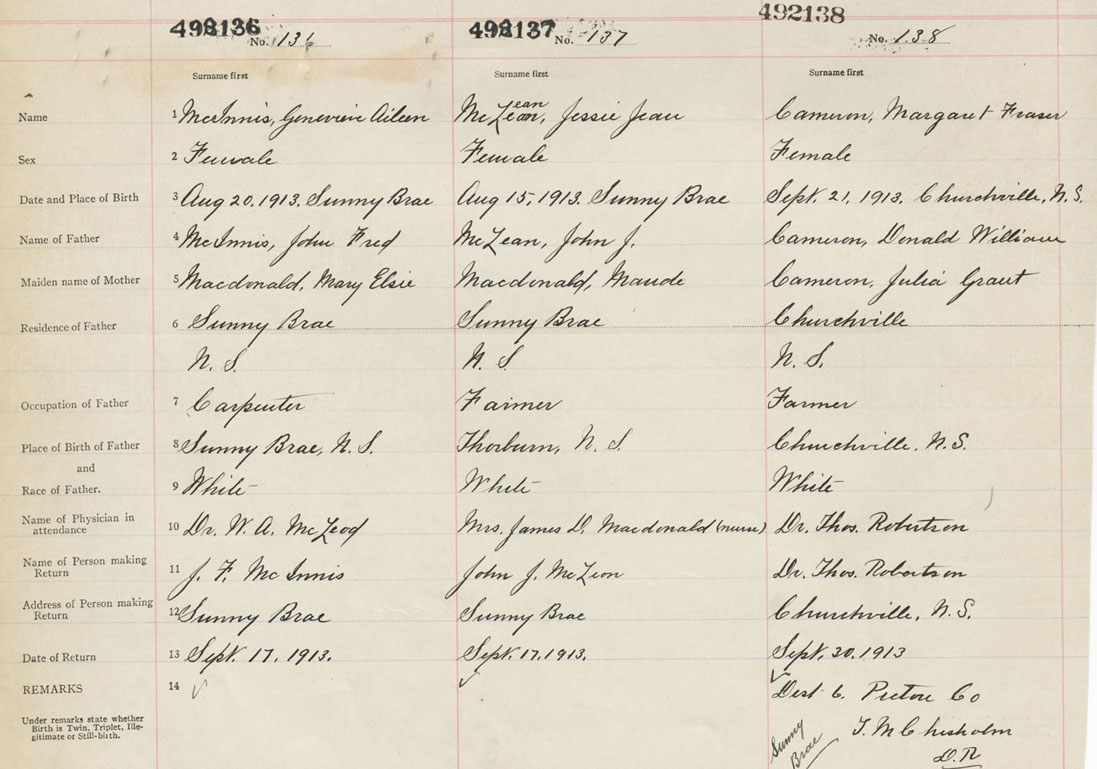 492136 492137 492138
No. 136 No. 137 No. 138
Surname first Surname first Surname first
ean
Name 1 McInnis, Genevieve Aileen McLean, Jessie Jean Cameron, Margaret Fraser
Sex 2 Female Female Female
Date and Place of Birth 3 Aug 20, 1913, Sunny Brae Aug 15, 1913. Sunny Brae Sept. 21, 1913, Churchville, N.S.
Name of Father 4 McInnis, John Fred McLean, John J. Cameron, Donald William
Maiden name of Mother 5 Macdonald, Mary Elsie Macdonald, Maude Cameron, Julia Grant
Residence of Father 6 Sunny Brae Sunny Brae Churchville
N. S. N. S N. S.
Occupation of Father 7 Carpenter Farmer Farmer
Place of Birth of Father 8 Sunny Brae, N. S. Thorburn, N. S Churchville. N.S.
and
Race of Father. 9 White White White
Name of Physician in
attendance 10 Dr. W. A. McLeod Mrs. James D. Macdonald (nurse) Dr. Thos. Robertson
Name of Person making
Return 11 J. F. McInnis John J. McLeon Dr. Thos. Robertson
Address of Person making
Return 12 Sunny Brae Sunny Brae Churchville, N.S.
Date of Return 13 Sept. 17, 1913. Sept. 17, 1913. Sept. 30, 1913
REMARKS 14 Dist 6. Pictou Co
Under remarks state whether
Birth is Twin, Triplet, Ille-
gitimate or Still-birth.
T. M Chisholm
D.R
Sunny
Brae